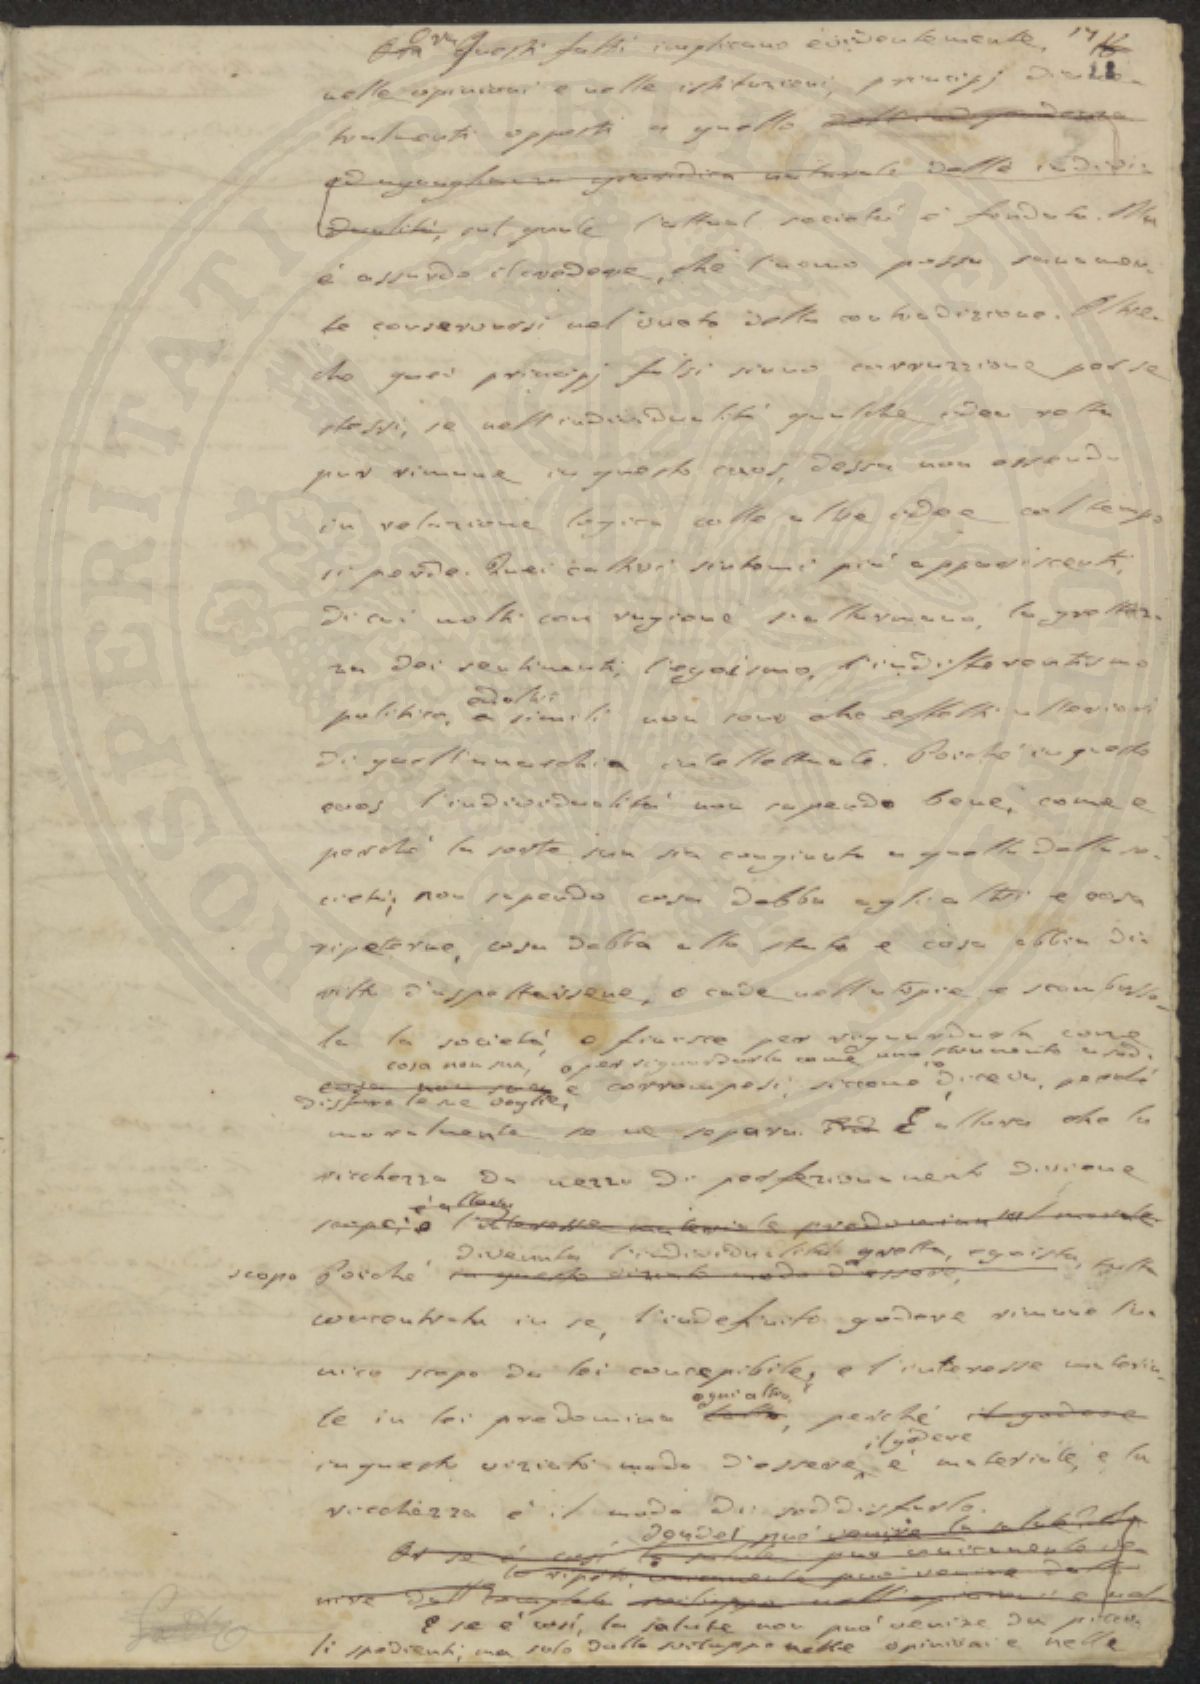 Ora questi fatti implicano evidentemente, 17
11
nelle opinioni e nelle istituzioni, principj diame-
tralmente opposti a quello dell'indipendenza
ed uguaglianza giuridica naturale della individu
dualità, sul quale l'attual società è fondata. Ma
è assurdo il credere, che l'uomo possa sanamen-
te conservarsi nel vuoto della contradizione. Oltre-
chè quei principj falsi siano corruzzione per se
stessi, se nell'individualità qualche idea retta
pur rimane in questo caos, dessa non essendo
in relazione logica colle altre idee col tempo
si perde. Quei cattivi sintomi più appariscenti,
di cui molti con ragione si allarmano, la grettez-
za dei sentimenti, l'egoismo, l'indifferentismo
politico, ed altri
e simili non sono che effetti ulteriori
di quell'anarchia intellettuale. Poichè in questo
caos l'individualità non sapendo bene, come e
perchè la sorte sua sia congiunta a quella della so-
cietà, non sapendo cosa debba agli altri e cosa
ripeterne, cosa debba allo stato e cosa abbia di-
ritto d'aspettarsene, o cade nell'utopie e scombusso-
la la società, o finisce per riguardarla come
cosa non sua, o per riguardarla come uno strumento a sod-
cosa non sua, e corrompesi, siccome io diceva, perchè
disfare le sue voglie,
moralmente se ne separa. È allora che la
ricchezza da mezzo di perfezionamento diviene
è allora
scopo, e l'interesse materiale predomina sul morale.
divenuta l'individualità gretta, egoista, tutta
scopo Poichè in questo viziato modo d'essere,
concentrata in se, l'indefinito godere rimane l'u-
nico scopo da lei concepibile, e l'interesse materia-
ogni altro
le in lei predomina tutto, perchè il godere
il godere
in questo viziato modo d'essere, è materiale, e la
ricchezza è il modo di soddisfarlo.
donde può venire la salute?
Or se è così la salute può unicamente ve-
lo ripeto, unicamente può venire dalla
nire dal completo sviluppo nell'opinioni e nel-
E se è così, la salute non può venire da picco-
li spedienti, ma solo dallo sviluppo nelle opinioni e nelle